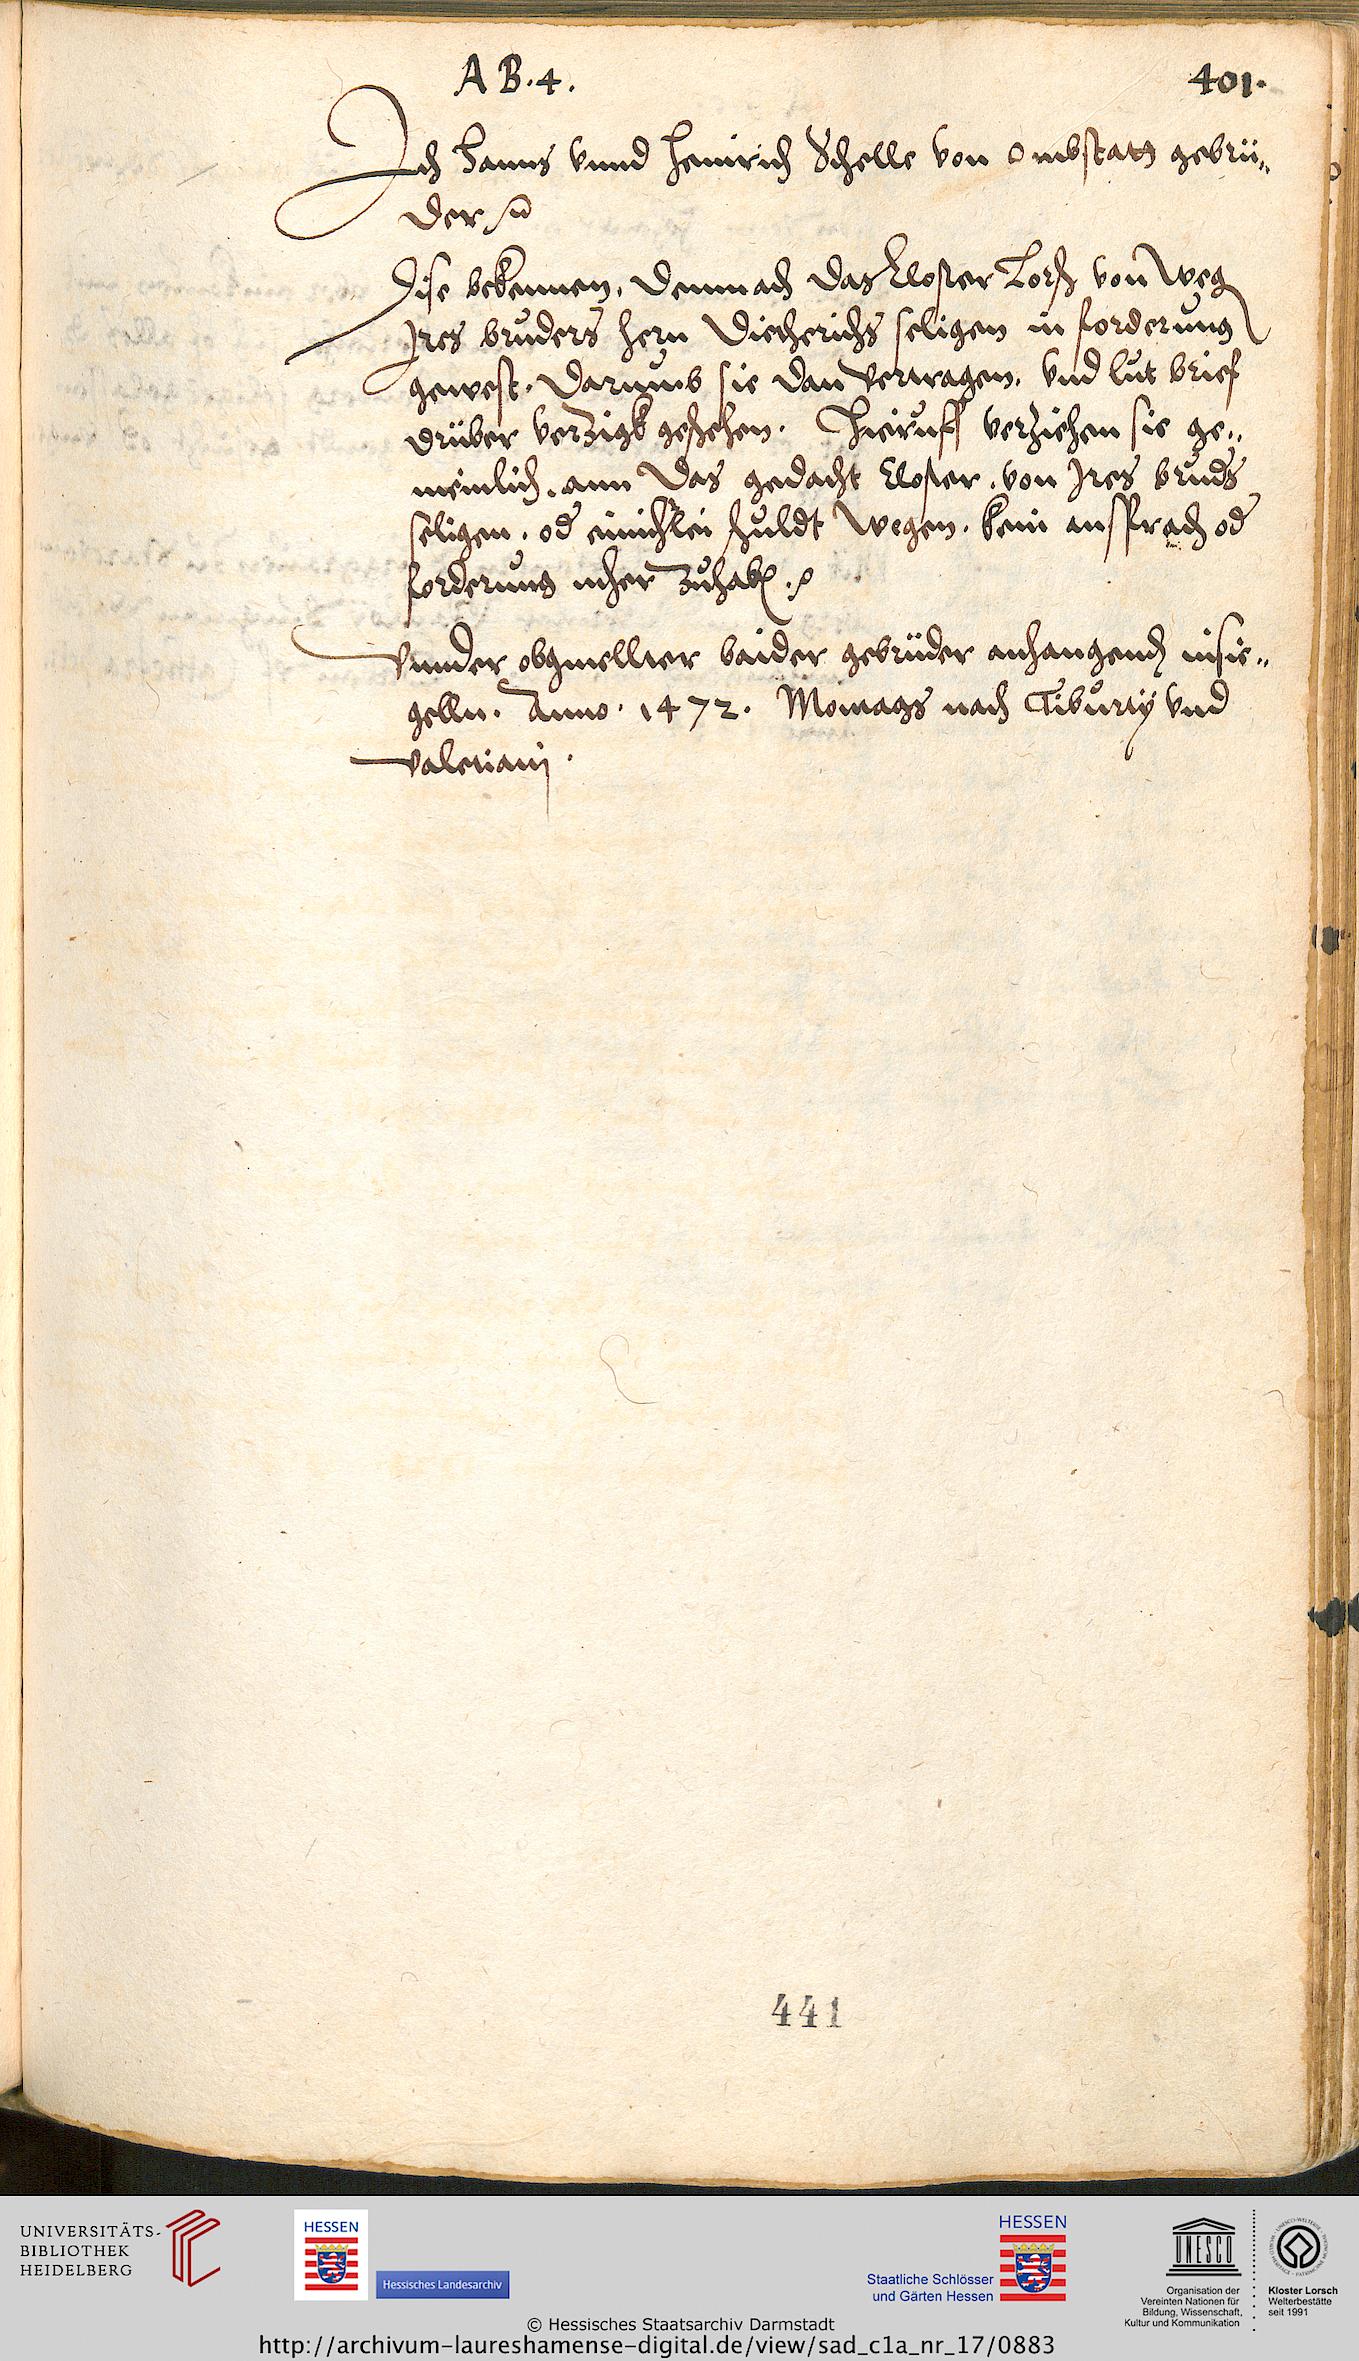 A B.4.
401.
Ich Hanns vnnd Heinrich Schelle von Ombstatt gebrü„
der
Dise bekennen, Demnach das Closter Lorß von weg
Ires bruders hern Diethericks seligen in forderung
gewest. Darumb sie dan vertragen. Vnd lut brief
drüber verzigk geschehen. Hieruff verziehen sie ge„
meinlich. ann das gedacht Closter. von Ires brud's
seligen. od' einich'lei schuldt wegen. kein ansprach od'
forderung meher zuhab
Vnnder obgmellter baider gebrüder anhangend insie„
gelln. Anno. 1472. Montags nach Tiburty vnd
Valeriani.
441
UNIVERSITÄTS-
BIBLIOTHEK
HEIDELBERG
HESSEN
Hessisches Landesarchiv
HESSEN
Staatliche Schlösser
und Gärten Hessen
UNESCO
Organisation der
Vereinten Nationen für
Bildung, Wissenschaft,
Kultur und Kommunikation
Kloster Lorsch
Welterbestätte
seit 1991
© Hessisches Staatsarchiv Darmstadt
http://archivum-laureshamense-digital.de/view/sad_c1a_nr_17/0883